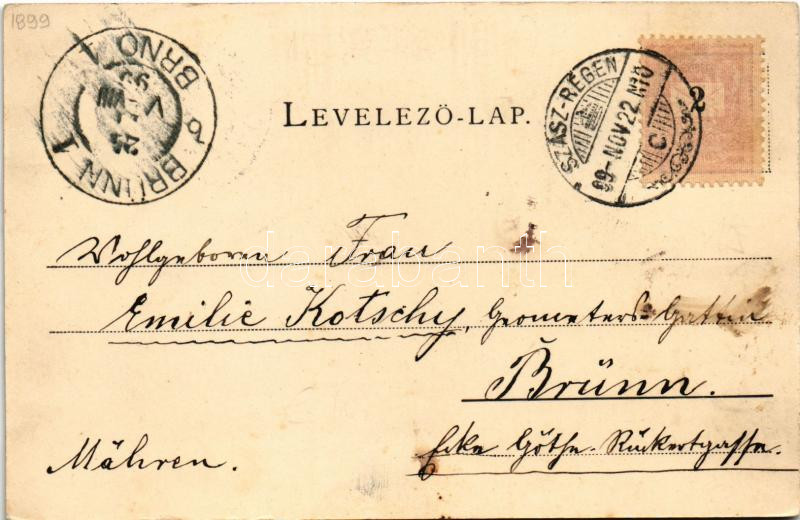 1899
BRÜNN 1
BRNO 1
LEVELEZŐ-LAP.
SZÁSZ-RÉGEN
99-NOV.22.N10
C
2
Wohlgeboren Frau
Emilie Kotschy, Geometers-Gattin
Brünn.
Mähren.
Ecke Göthe-Rückertgasse.
darabanth